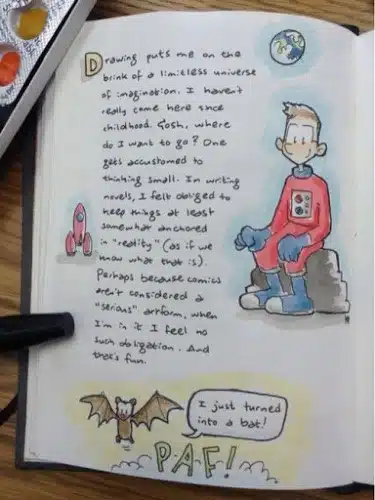 Drawing puts me on the
brink of a limitless universe
of imagination. I haven't
really come here since
childhood. Gosh, where
do I want to go? One
gets accustomed to
thinking small. In writing
novels, I felt obliged to
keep things at least
somewhat anchored
in "reality" (as if we
know what that is).
Perhaps because comics
aren't considered a
"serious" artform, when
I'm in it I feel no
such obligation. And
that's fun.
I just turned
into a bat!
PAF!